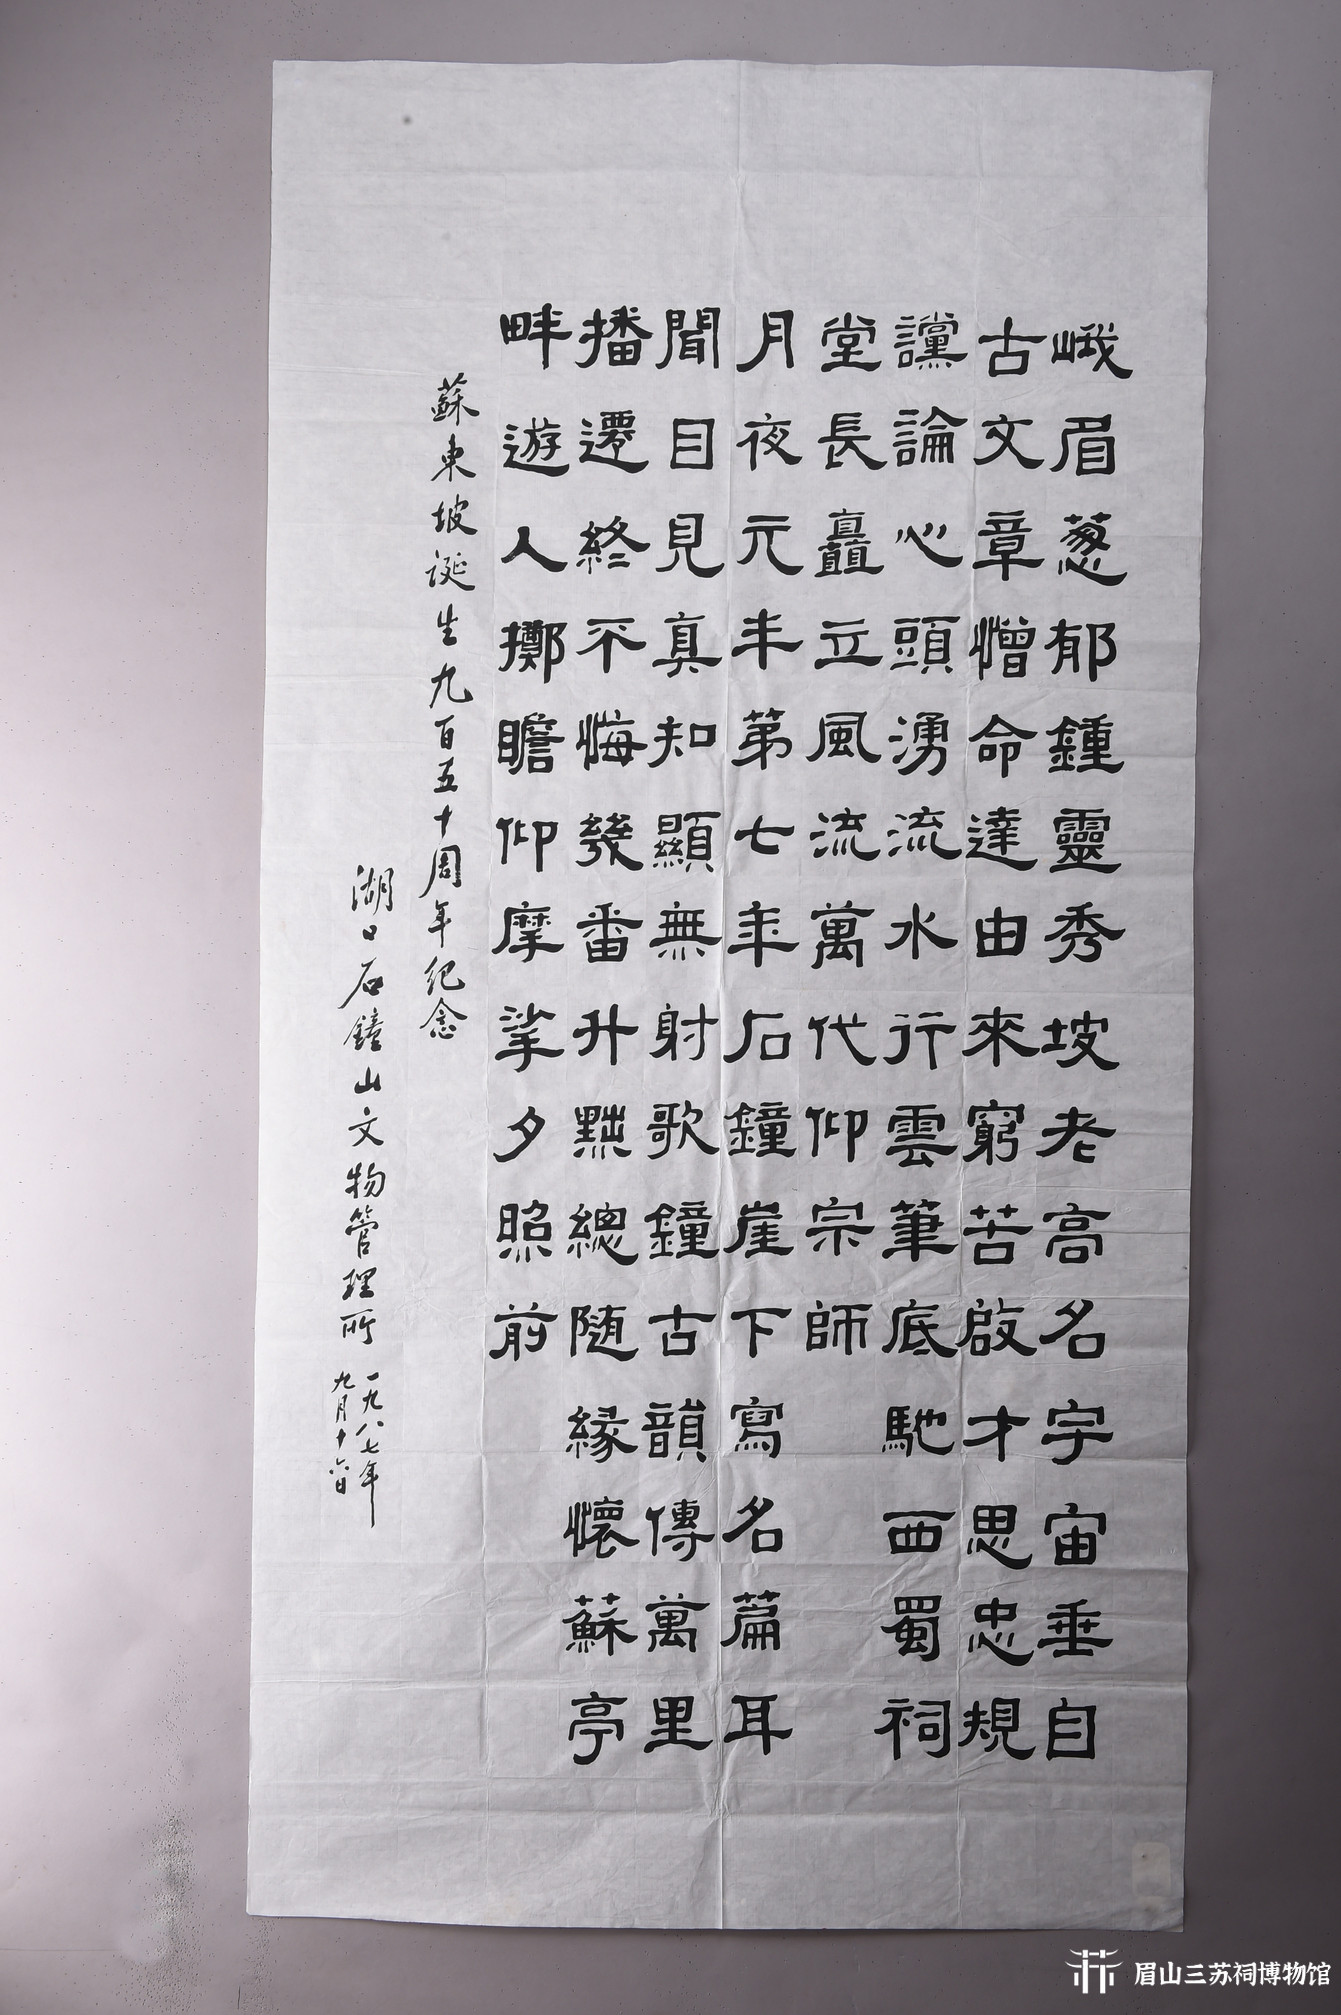 峨眉蔥郁鍾靈秀坡老高名宇宙垂自
古文章憎命達由來窮苦啟才思忠規
讜論心頭湧流水行雲筆底馳西蜀祠
堂長矗立風流萬代仰宗師
月夜元丰第七年石鐘崖下寫名篇耳
聞目見真知顯無射歌鐘古韻傳萬里
播遷終不悔幾番升黜總隨緣懷蘇亭
畔遊人擲瞻仰摩挲夕照前
蘇東坡誕生九百五十周年紀念
湖口石鐘山文物管理所
一九八七年
九月十六日
眉山三苏祠博物馆